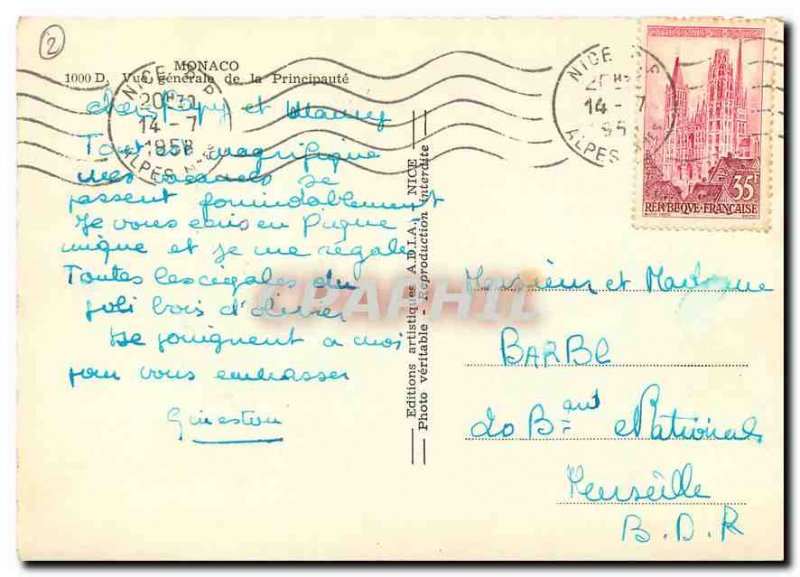 2
MONACO
1000 D. Vue générale de la Principauté
NICE R.P.
20H30
14-7
1958
ALPES M.
NICE R.P.
14-7
195
ALPES
35F
REPUBLIQUE-FRANÇAISE
cher Papy et Mamy
Tout est magnifique
mes vacances se
passent formidablement
Je vous écris en pique
nique et je me régale
Toutes les cigales du
joli bois d'
se joignent à moi
pour vous embrasser
Editions artistiques A.D.I.A. NICE
Photo véritable - Reproduction interdite
CPAPHIL
Monsieur et Madame
BARBE
20 Bd National
Marseille
B.D.R